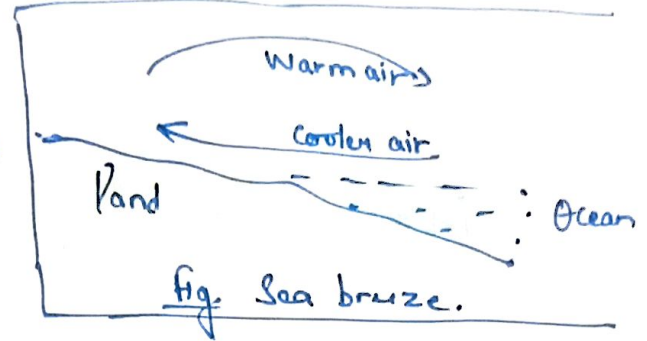 Warm air
Cooler air
Land
Ocean
Fig. Sea breeze.